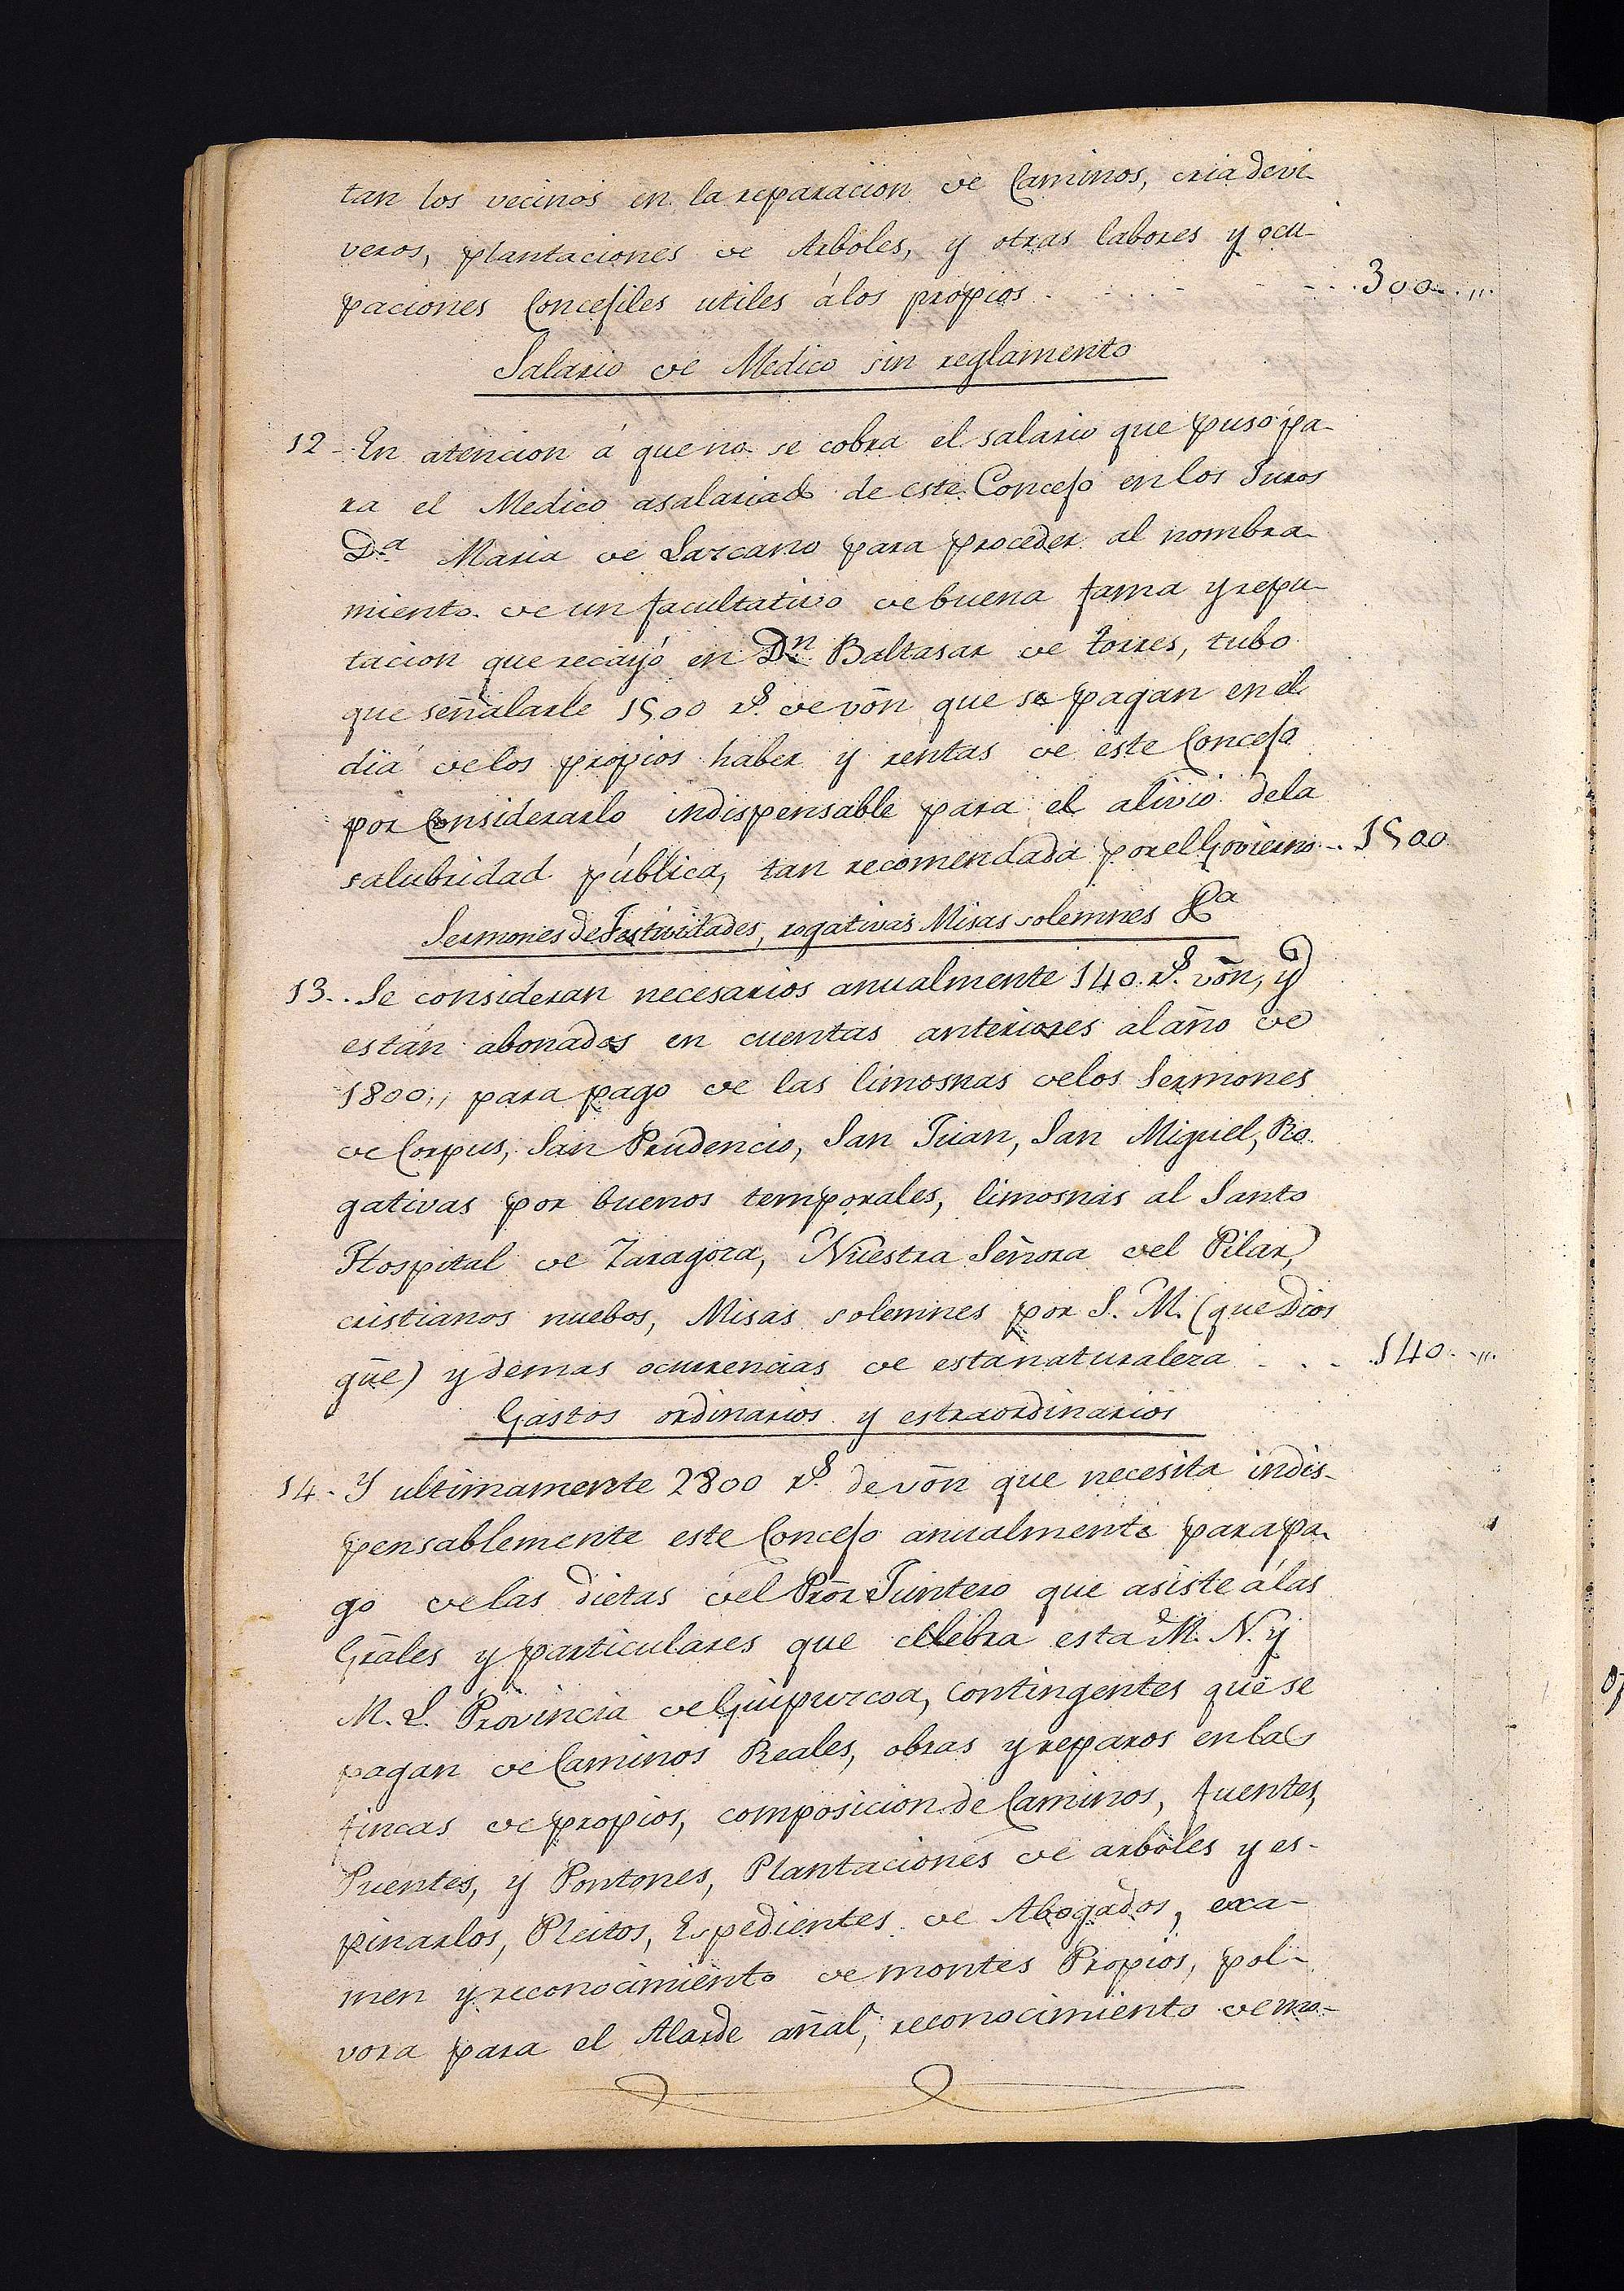 tan los vecinos en la reparacion de Caminos, cria de vi-
veros, plantaciones de Arboles, y otras labores y ocu-
paciones Concejiles utiles á los propios - - - - - - 300 - ,,
Salario de Medico sin reglamento
12 - En atencion á que no se cobra el salario que pusó pa-
ra el Medico asalariado de este Concejo en los Juros
D.ª Maria de Lazcano para proceder al nombra-
miento de un facultativo de buena fama y repu-
tacion que recayó en Dn. Baltasar de torres, tubo
que señalarle 1500 rs. de von que se pagan en el
dia de los propios haber y rentas de este Concejo
por Considerarlo indispensable para el alivio de la
salubridad pública, tan recomendada por el Govierno - - 1500
Sermones de Festividades, rogativas Misas solemnes &a
13 - - Se consideran necesarios anualmente 140 rs. von, y
están abonados en cuentas anteriores al año de
1800,, para pago de las limosnas de los Sermones
de Corpus, San Prudencio, San Juan, San Miguel, Ro-
gativas por buenos temporales, limosnas al Santo
Hospital de Zaragoza, Nuestra Señora del Pilar,
cristianos nuebos, Misas solemnes por S. M. (que Dios
gue) y demas ocurrencias de esta naturaleza - - - 140 - ,,
Gastos ordinarios y estraordinarios
14 - Y ultimamente 2800 rs. de von que necesita indis-
pensablemente este Concejo anualmente para pa-
go de las dietas del Pror Juntero que asiste á las
Grales y particulares que celebra esta M. N. y
M. L. Provincia de Guipuzcoa, Contingentes que se
pagan de Caminos Reales, obras y reparos en las
fincas de propios, composicion de Caminos, fuentes,
Puentes, y Pontones, Plantaciones de arboles y es-
pinarlos, Pleitos, Espedientes de Abogados, exa-
men y reconocimiento de montes Propios, pol-
vora para el Alarde añal, reconocimiento de mo-